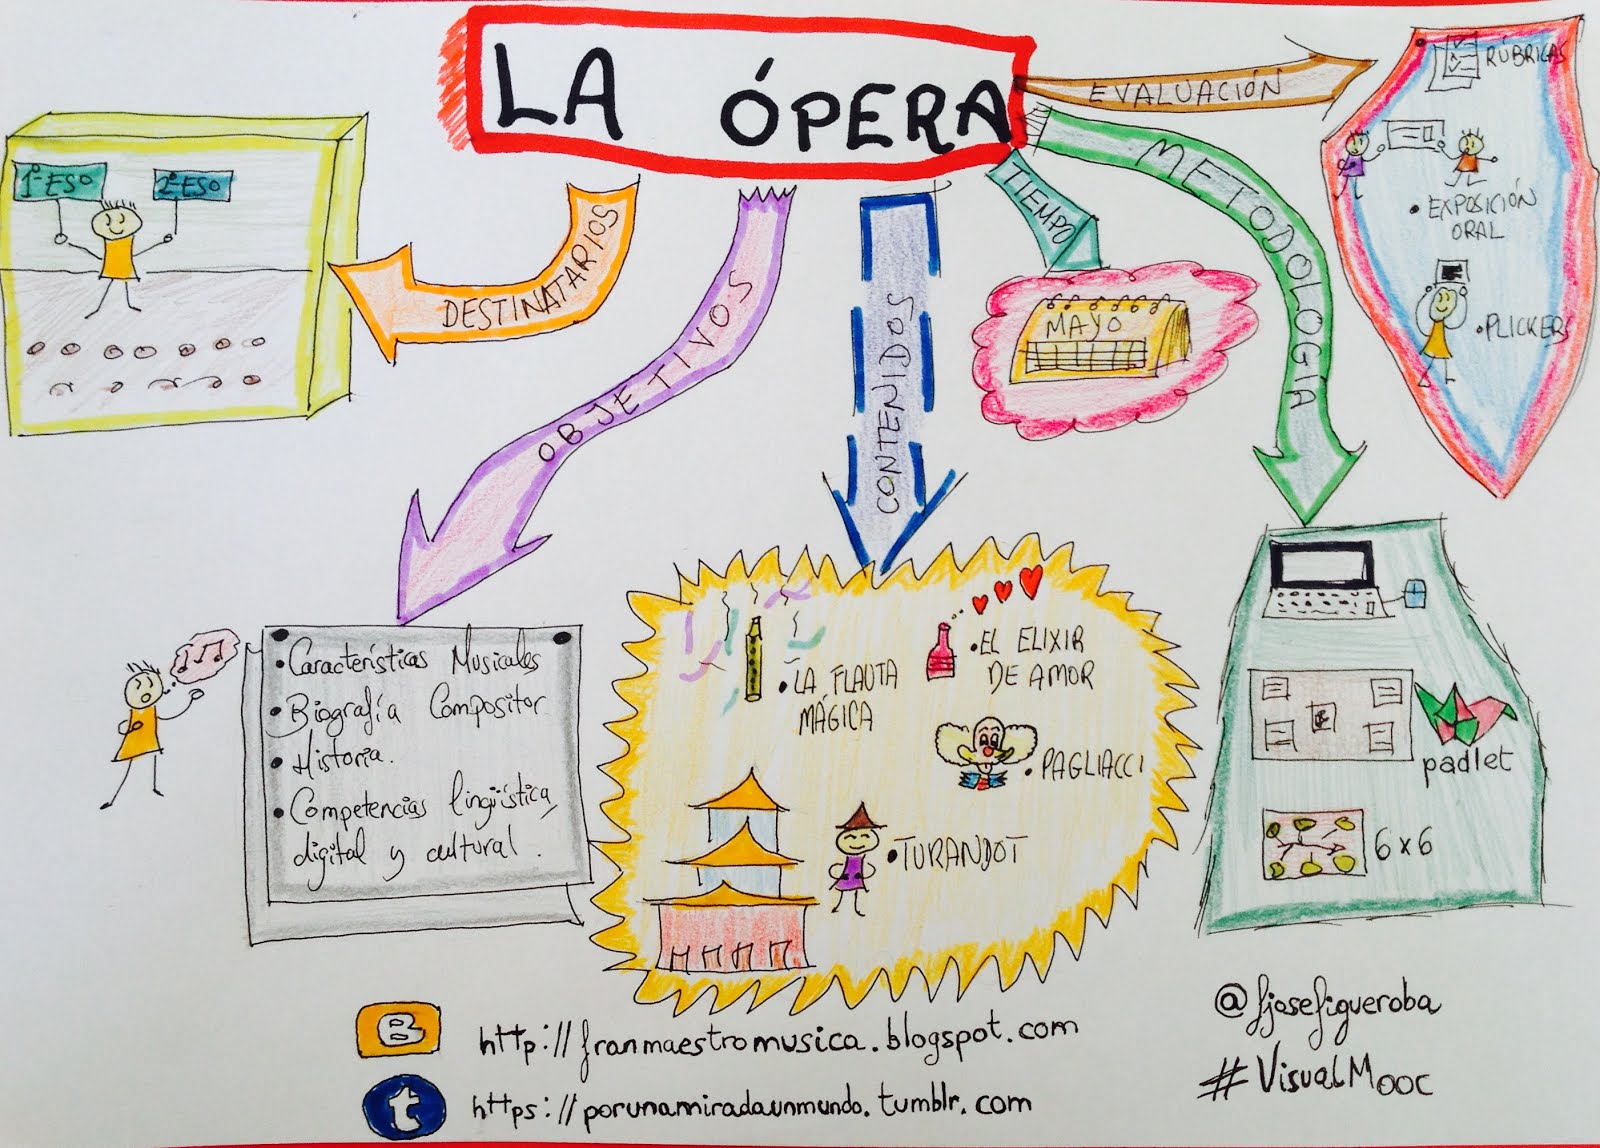 LA ÓPERA
EVALUACIÓN
RÚBRICAS
• EXPOSICIÓN
ORAL
• PLICKERS
METODOLOGIA
TIEMPO
MAYO
DESTINATARIOS
1º ESO
2º ESO
OBJETIVOS
CONTENIDOS
• Características Musicales
• Biografía Compositor
• Historia.
• Competencias lingüística,
digital y cultural.
• LA FLAUTA
MÁGICA
• EL ELIXIR
DE AMOR
• PAGLIACCI
• TURANDOT
padlet
6x6
@fjosefigueroba
#VisualMooc
B
http://franmaestromusica.blogspot.com
t
https://porunamiradaunmundo.tumblr.com